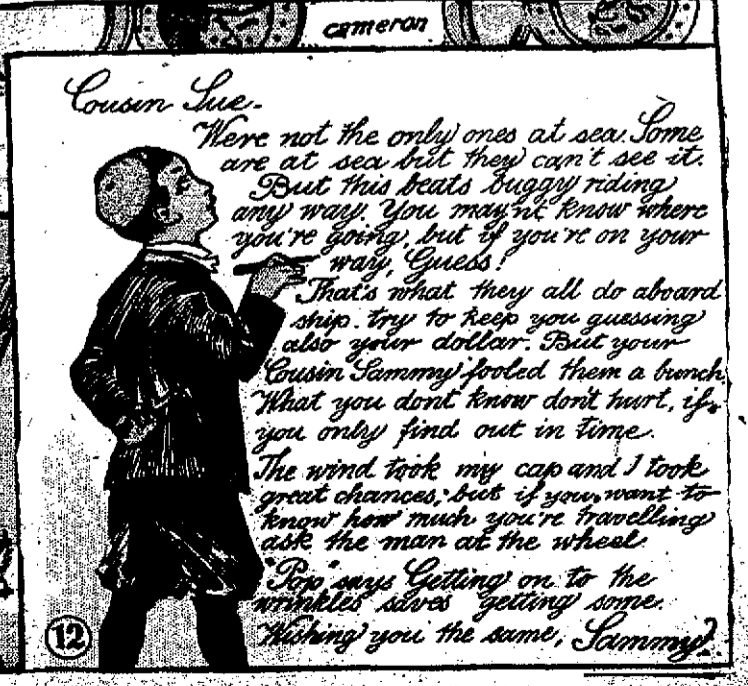 cameron
Cousin Sue-
Were not the only ones at sea. Some
are at sea but they can't see it.
But this beats buggy riding
any way. You mayn't know where
you're going, but if you're on your
way, Guess!
That's what they all do aboard
ship. try to keep you guessing
also your dollar. But your
Cousin Sammy fooled them a bunch.
What you dont know don't hurt, if
you only find out in time.
The wind took my cap and I took
great chances; but if you want to
know how much you're travelling
ask the man at the wheel.
"Pop" says Getting on to the
wrinkles saves getting some.
Wishing you the same, Sammy.
12